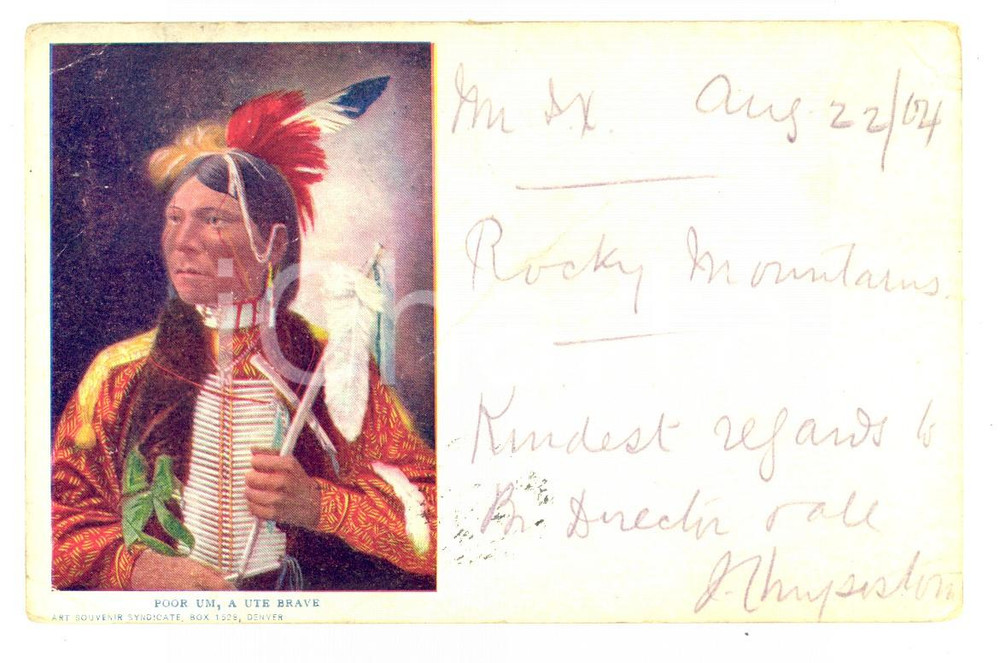 Aug 22/04
Rocky Mountains.
Kindest regards to
Br. Director & all
POOR UM, A UTE BRAVE
ART SOUVENIR SYNDICATE, BOX 1528, DENVER